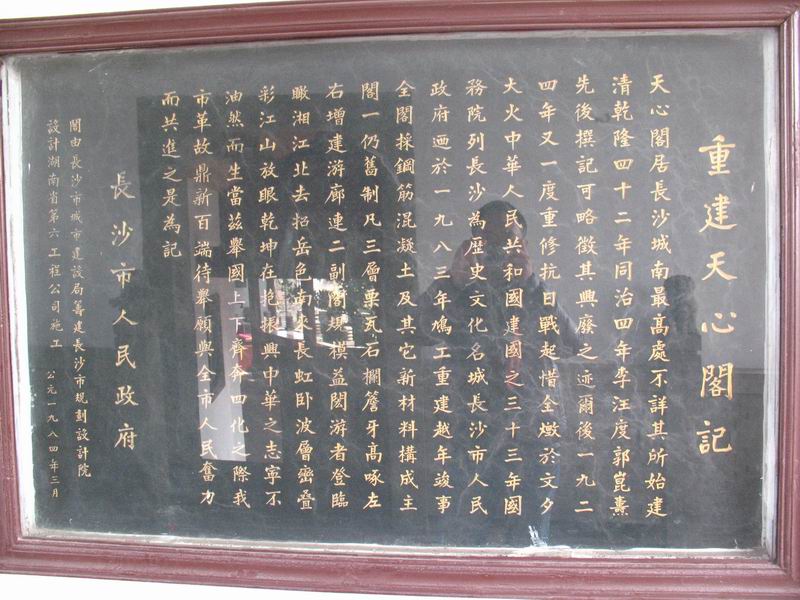 重建天心閣記
天心閣居長沙城南最高處不詳其所始建
清乾隆四十二年同治四年李汪度郭崑燾
先後撰記可略徵其興廢之迹爾後一九二
四年又一度重修抗日戰起惜全燬於文夕
大火中華人民共和國建國之三十三年國
務院列長沙為歷史文化名城長沙市人民
政府迺於一九八三年鳩工重建越年竣事
全閣採鋼筋混凝土及其它新材料構成主
閣一仍舊制凡三層栗瓦石欄簷牙高啄左
右增建游廊連二副閣規模益閎游者登臨
瞰湘江北去招岳色南來長虹卧波層巒疊
彩江山放眼乾坤在抱振興中華之志寧不
油然而生當茲舉國上下齊奔四化之際我
市革故鼎新百端待舉願與全市人民奮力
而共進之是為記
長沙市人民政府
閣由長沙市城市建設局籌建長沙市規劃設計院
設計湖南省第六工程公司施工 公元一九八四年三月